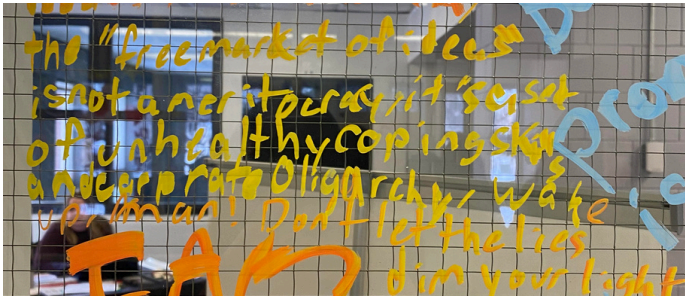 the "free market of ideas"
is not a meritocracy, it's a set
of unhealthy coping skills
and corporate Oligarchy, wake
up, man! Don't let the lies
dim your light